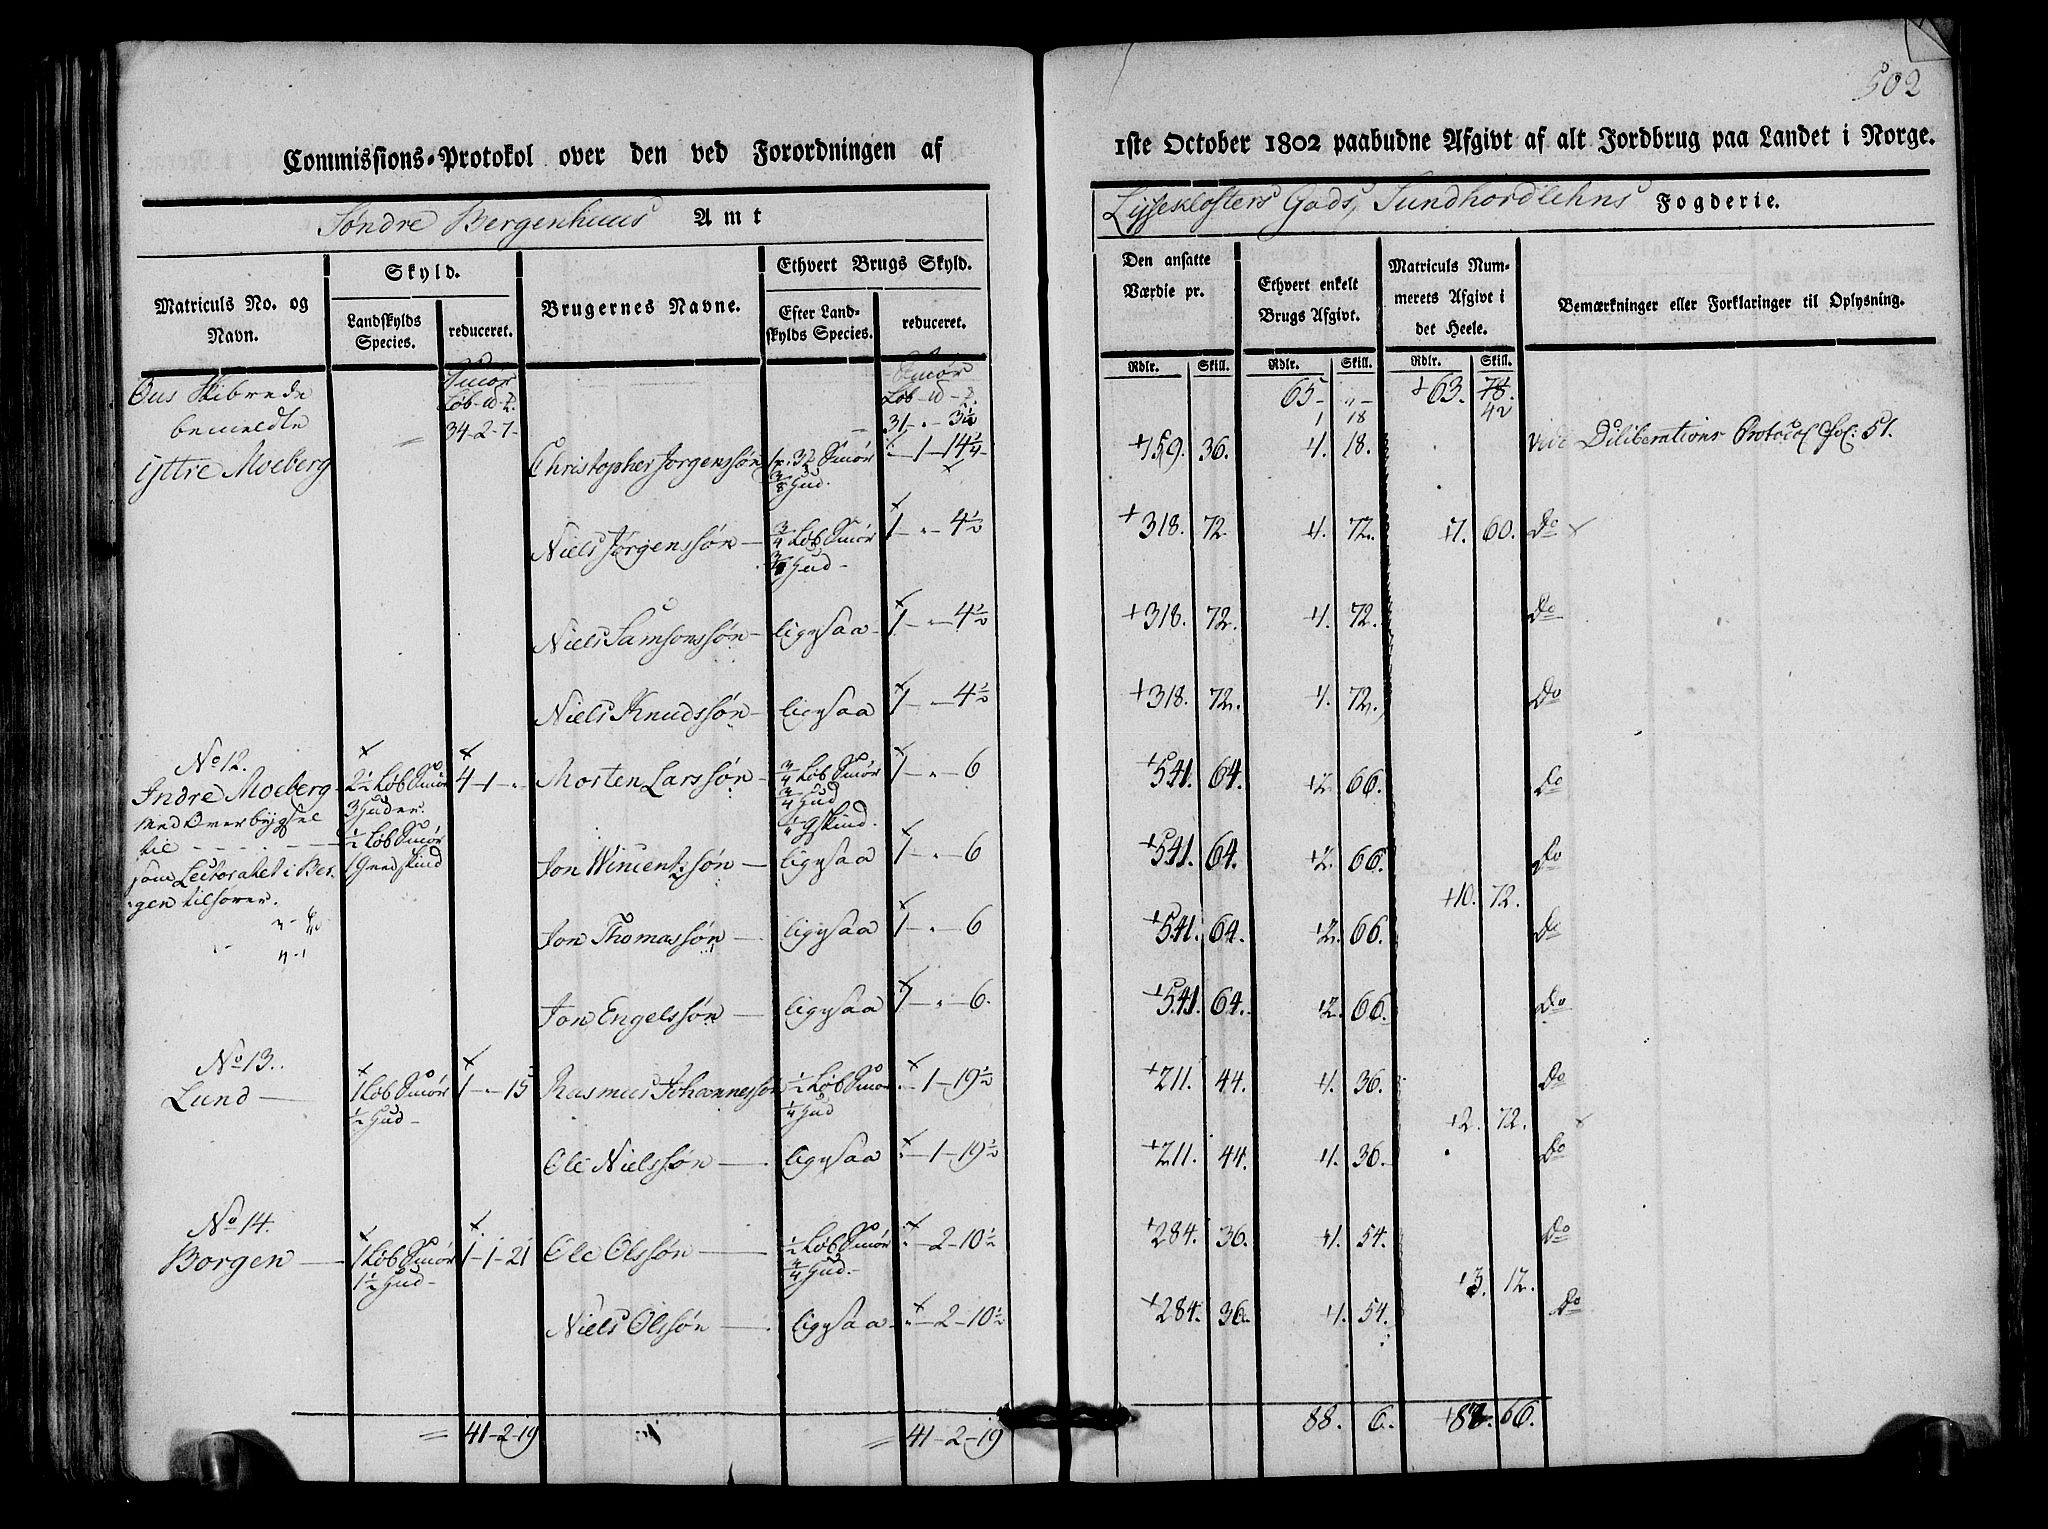 502
Commissions-Protokol over den ved Forordningen af
1ste October 1802 paabudne Afgivt af alt Jordbrug paa Landet i Norge.
Søndre Bergenhuus Amt
Lysseklosters Gods, Sundhordlehns Fogderie.
Matriculs No. og Navn.
Skyld.
Landskylds Species.
reduceret.
Brugernes Navne.
Ethvert Brugs Skyld.
Efter Landskylds Species.
reduceret.
Den ansatte Værdie pr.
Ethvert enkelt Brugs Afgivt.
Matriculs Nummerets Afgivt i det Heele.
Bemærkninger eller Forklaringer til Oplysning.
Rdlr. Skill. Rdlr. Skill. Rdlr. Skill.
Ous Skibrede
bemeldte
Smør
Løb-
34-2-7-
Smør
Løb-
31-„-3½
65-„-
1 18
+63. 78. 42
Yttre Moeberg
Christopher Jørgenssøn
Smør
⅜ Hud.
„-1-14¼
+159. 36. 4. 18.
vide Deliberations Protocol Fol: 51.
Niels Jørgenssøn-
¾ Løb Smør
Hud-
1-„-4½
+318. 72. 4. 72. +7. 60. Do
Niels Samsonssøn- ligesaa- 1-„-4½ +318. 72. 4. 72. Do
Niels Knudssøn- ligesaa 1-„-4½ +318. 72. 4. 72. Do
No 12.
Indre Moeberg-
med Overbygsel
til - - - - -
som Lectoratet i Ber-
gen tilhører.
2½ Løb Smør
3 Huder.
½ Løb Smør
1 Geedskind
4-1-„
Morten Larssøn-
¾ Løb Smør
¾ Hud
¼ Gskind.
1-„-6
+541. 64. +2. 66. Do
Jon Wincentssøn- ligesaa 1-„-6 +541. 64. +2. 66. Do
+10. 72.
Jon Thomassøn- ligesaa 1-„-6 +541. 64. +2. 66. Do
Jon Engelssøn- ligesaa 1-„-6. +541. 64. +2. 66. Do
No 13.
Lund-
1 Løb Smør
½ Hud-
1-„-15
Rasmus Johannessøn
½ Løb Smør
¼ Hud
„-1-19½
+211. 44. +1. 36. Do
+2. 72.
Ole Nielssøn- ligesaa „-1-19½ +211. 44. +1. 36. Do
No 14.
Borgen-
1 Løb Smør
1½ Hud-
1-1-21
Ole Olssøn-
½ Løb Smør
¾ Hud.-
„-2-10½
+284. 36. +1. 54. Do
+3. 12.
Niels Olssøn- ligesaa- „-2-10½ +284. 36. +1. 54. Do
= 41-2-19 = 41-2-19 88. 6. 66.